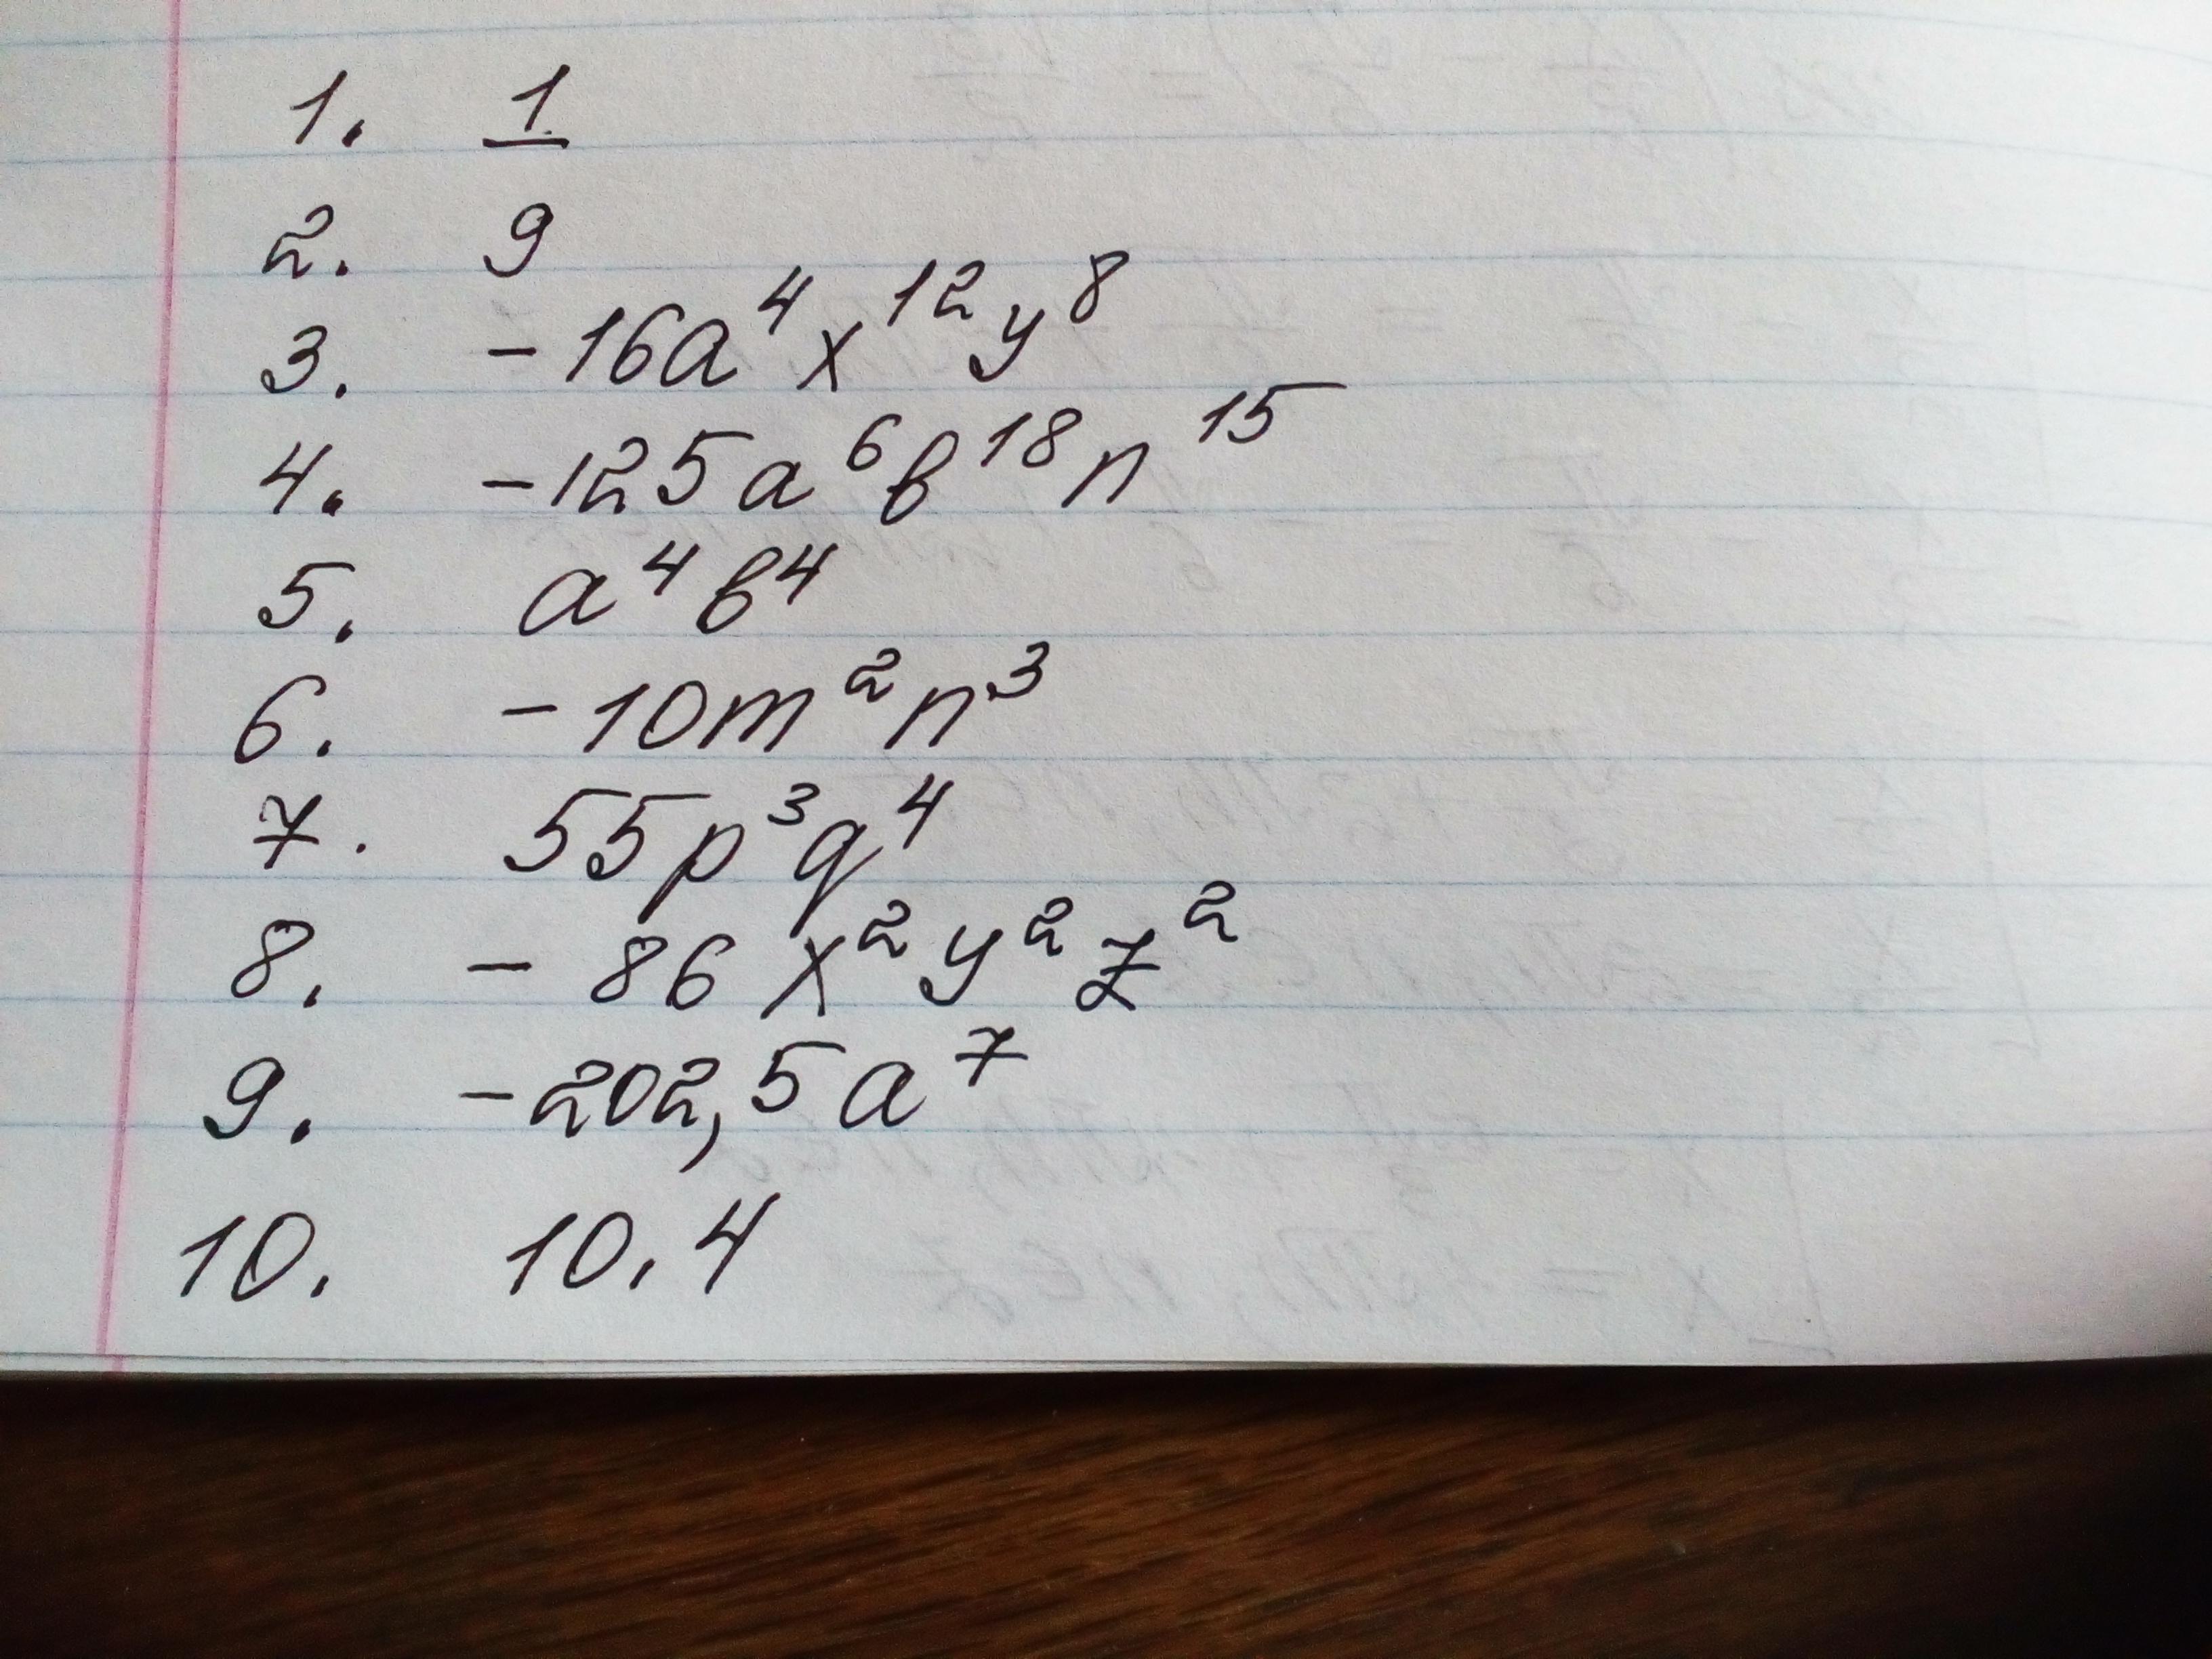 1. 1
2. 9
3. -16a⁴x¹²y⁸
4. -125a⁶b¹⁸n¹⁵
5. a⁴b⁴
6. -10m²n³
7. 55p³q⁴
8. - 86x²y²z²
9. -202,5a⁷
10. 10.4